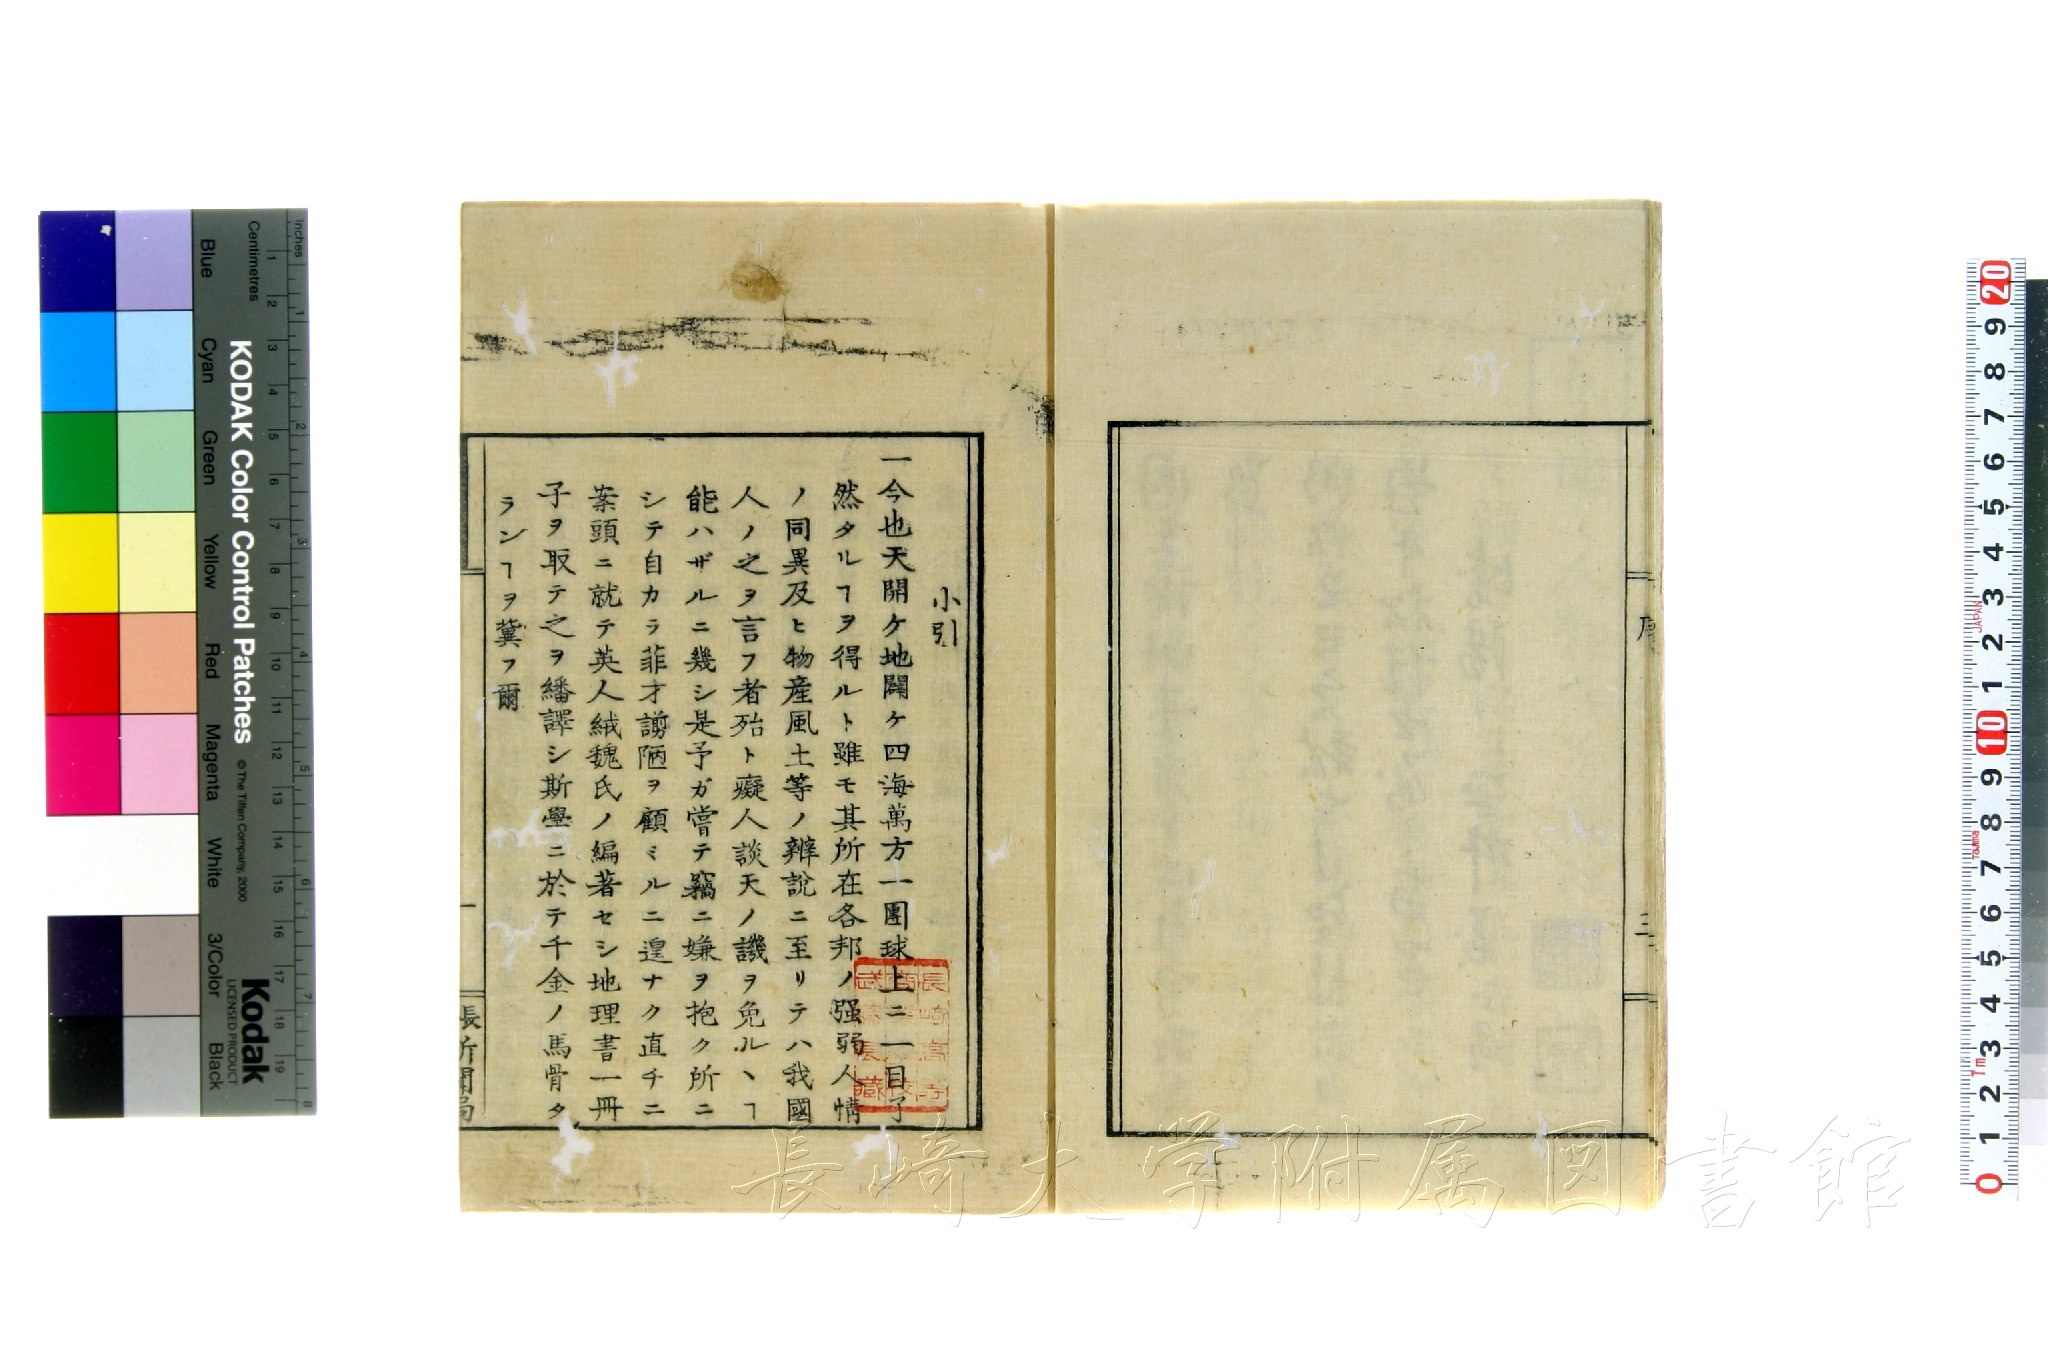 序
三
小引
一今也天開ケ地闢ケ四海萬方一團球上ニ一目了
然タルヿヲ得ルト雖モ其所在各邦ノ强弱人情
ノ同異及ヒ物産風土等ノ辨說ニ至リテハ我國
人ノ之ヲ言フ者殆ト癡人談天ノ譏ヲ免ルヽヿ
能ハザルニ幾シ是予ガ嘗テ竊ニ嫌ヲ抱ク所ニ
シテ自カラ菲才謭陋ヲ顧ミルニ遑ナク直チニ
案頭ニ就テ英人絨魏氏ノ編著セシ地理書一冊
子ヲ取テ之ヲ繙譯シ斯學ニ於テ千金ノ馬骨タ
ランヿヲ冀フ爾
一
長崎
武藤長藏
長崎大学附属図書館
KODAK Color Control Patches
© The Tiffen Company, 2000
Kodak
LICENSED PRODUCT
Inches
Centimetres
1 2 3 4 5 6 7 8
1 2 3 4 5 6 7 8 9 10 11 12 13 14 15 16 17 18 19
Blue
Cyan
Green
Yellow
Red
Magenta
White
3/Color
Black
20 9 8 7 6 5 4 3 2 1 10 9 8 7 6 5 4 3 2 1 0
JAPAN
Tajima
7m